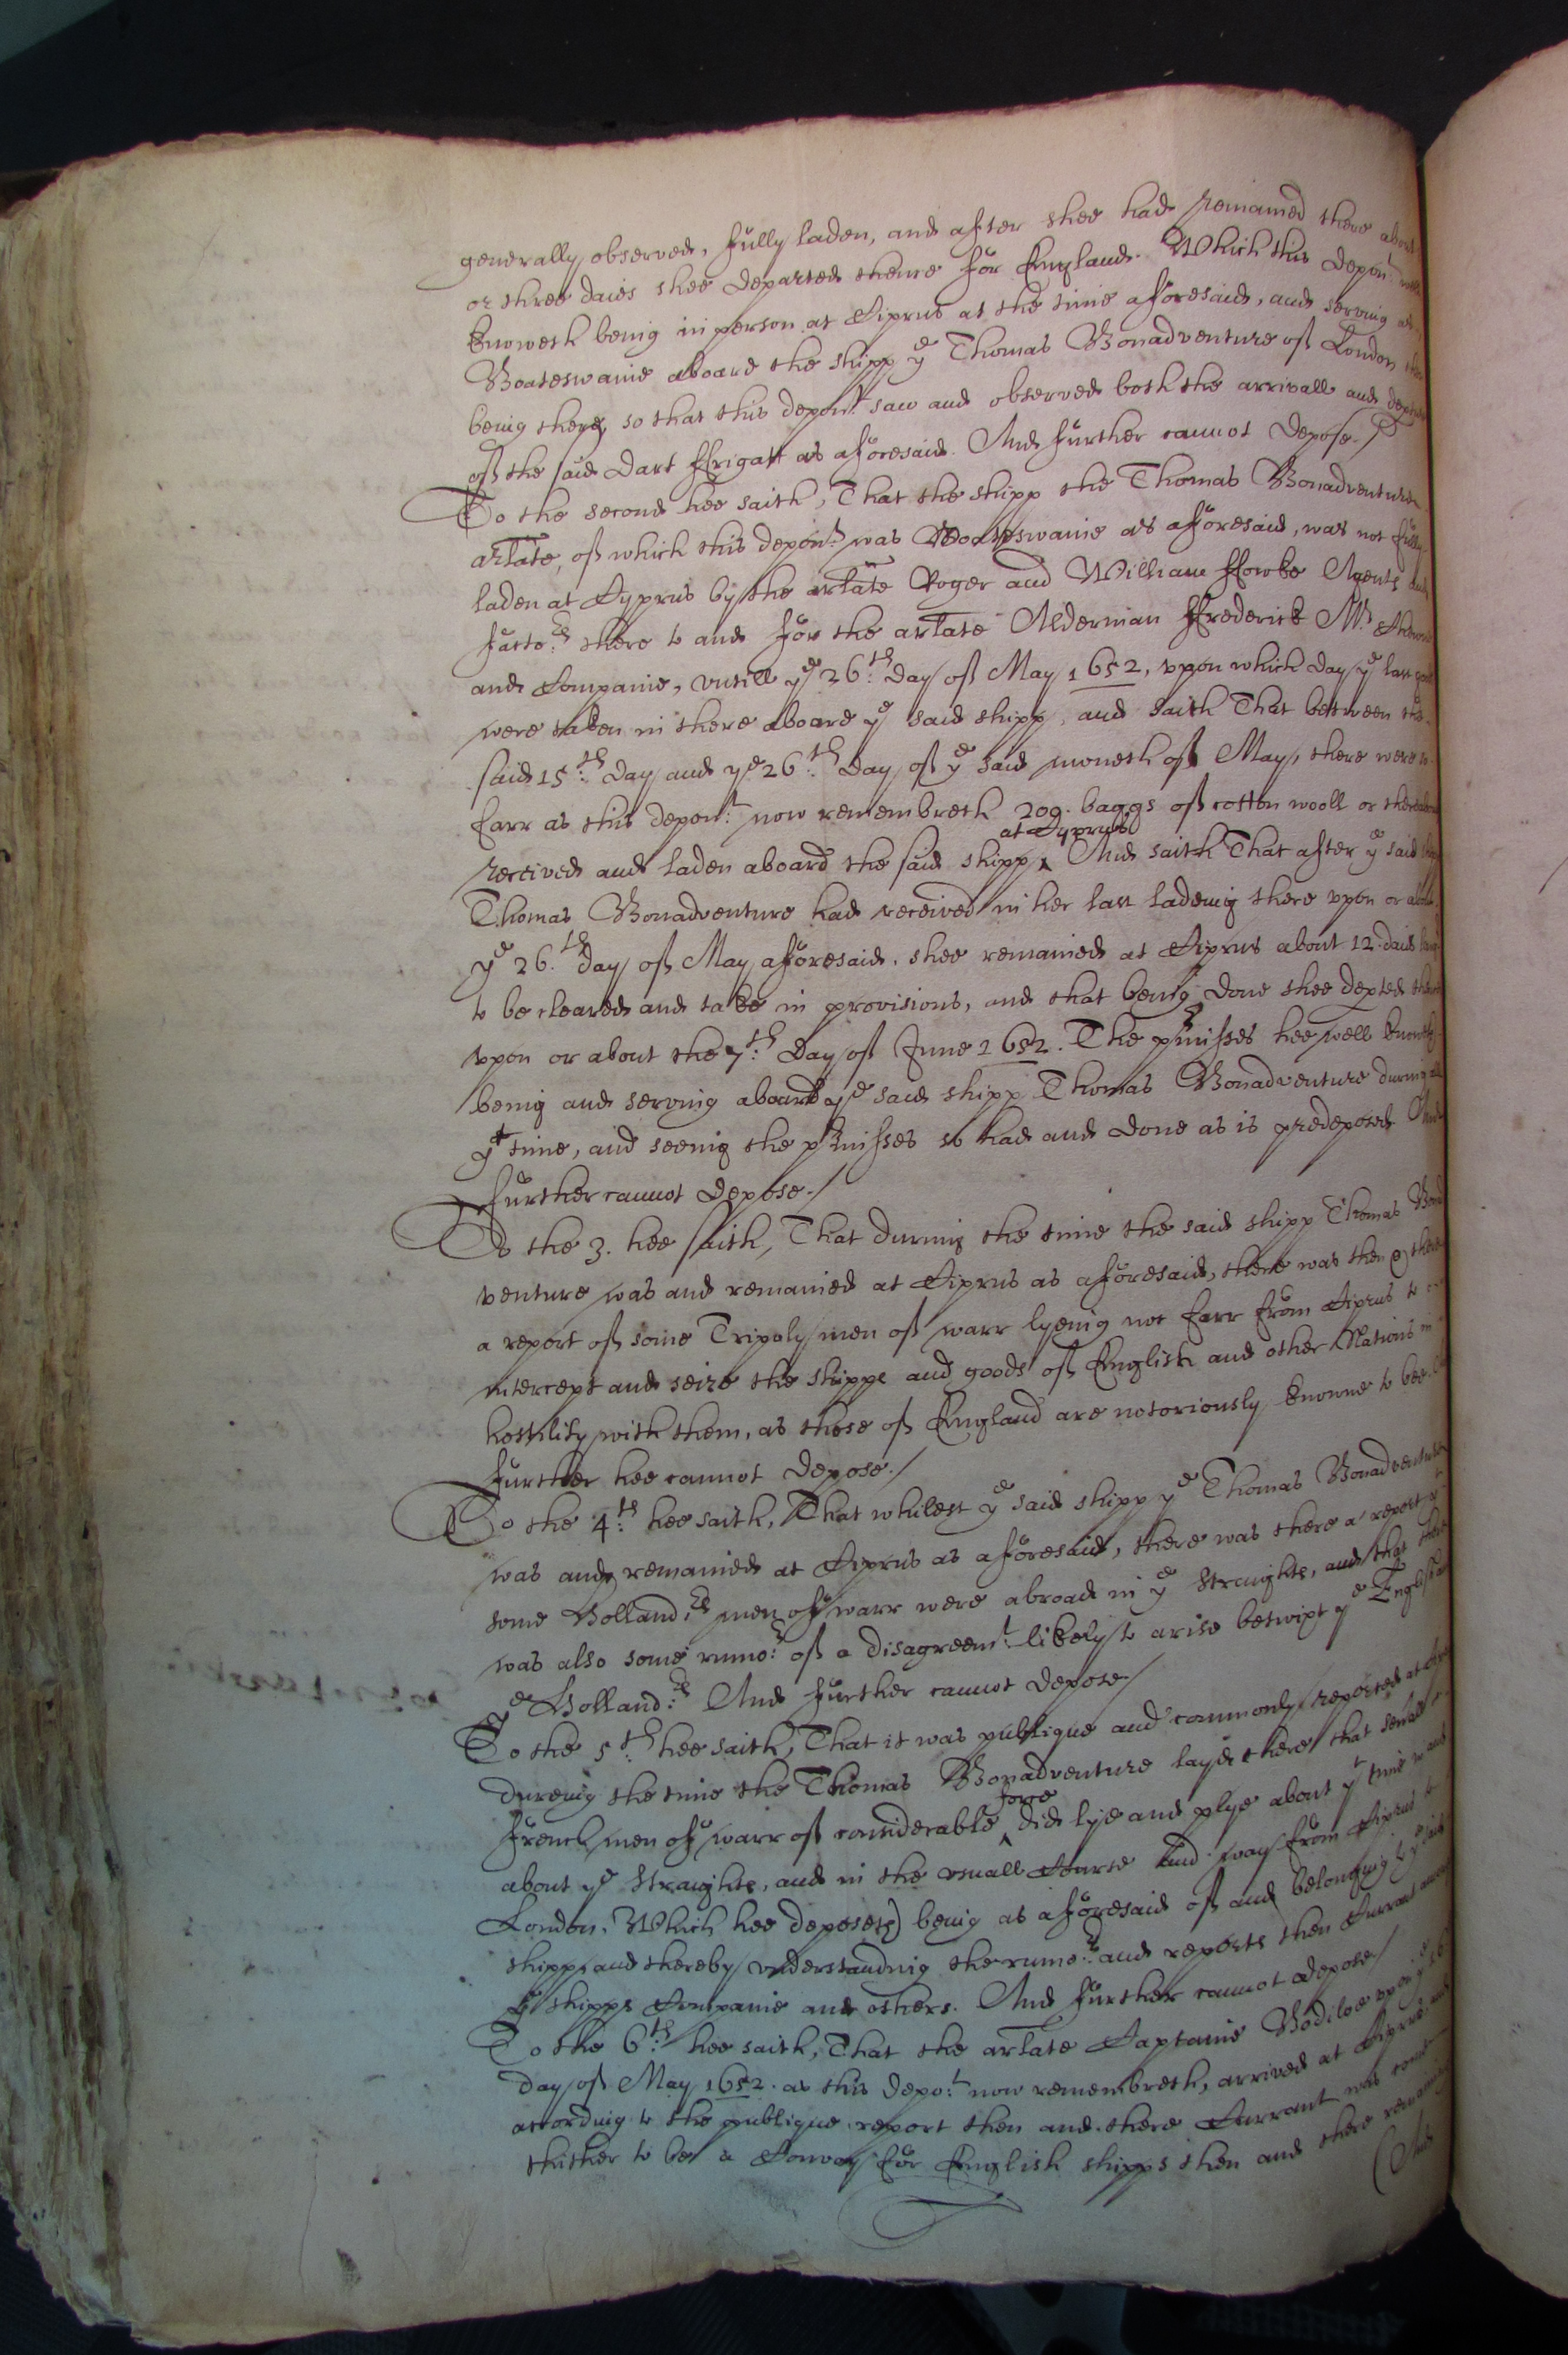 generally observed, fully laden, and after shee had remained there about
or three daies shee departed thence for England. Which this depon:t
knoweth being in person at Ciprus at the time aforesaid, and serving as
Boateswaine aboard the shipp ye Thomas Bonadventure of London then
being there, so that this depont saw and observed both the arrivall and depture
of the said Dart ffrigatt as aforesaid. And further cannot depose./
To the second hee saith, That the shipp the Thomas Bonadventure
arlate, of which this depon:t was Boateswaine as aforesaid, was not fully
laden at Cyprus by the arlate Roger and William ffowke Agents and
facto:rs there to and for the arlate Alderman ffrederick Mr.
and Companie, vntill ye 26:th day of May 1652, vpon which day ye last goods
were taken in there aboard ye said shipp, and saith That between the
said 15:th day and ye 26:th day of ye said moneth of May, there were so
farr as this depon:t now remembreth 209. baggs of cotton wooll or thereabouts
received and laden aboard the said shipp at Cyprus And saith That after ye said shipp
Thomas Bonadventure had received in her last ladeing there vpon or about
ye 26.th day of May aforesaid, shee remained at Ciprus about 12. daies
to be cleared and take in provisions, and that being done shee depted thence
vpon or about the 7:th day of June 1652. The pmisses hee well knoweth
being and serving aboard ye said shipp Thomas Bonadventure during all
yt time, and seeing the pmisses so had and done as is predeposed And
further cannot depose./
To the 3. hee saith, That during the time the said shipp Thomas Bonad
venture was and remained at Ciprus as aforesaid, there was then & there
a report of some Tripoly men of warr lyeing not farr from Ciprus to
intercept and seize the shipps and goods of English and other Nations in
hostility with them, as those of England are notoriously knowne to bee.
further hee cannot depose./
To the 4:th hee saith, That whilest ye said shipp ye Thomas Bonadventure
was and remained at Ciprus as aforesaid, there was there a report yt
some Holland:rs men of warr were abroad in ye Straights, and that there
was also some rumo:r of a disagreem:t likely to arise betwixt ye English and
ye Holland:rs And further cannot depose./
To the 5:th hee saith, That it was publique and commonly reported at
dureing the time the Thomas Bonadventure layd there that severall
french men of warr of considerable force did lye and plye about yt time in and
about ye Straights, and in the vsuall Course and way from Ciprus to
London. Which hee deposeth being as aforesaid of and belonging to ye said
shipp, and thereby vnderstanding the rumo:rs and reports then Currant
ye shipps Companie and others. And further cannot depose./
To the 6:th hee saith, That the arlate Captaine Bodiloe vpon ye
day of May 1652. as this depo:t now remembreth, arrived at Ciprus, and
according to the publique report then and there Currant was come
thither to be a Convoy for English shipps then and there remaining
(And